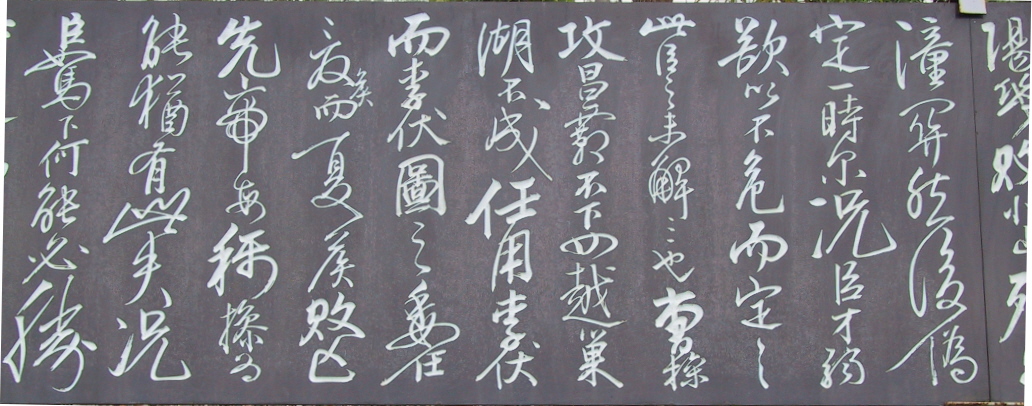 潼關然後僞
定一時尔況臣才弱
欲以不危而定之
此臣之未解三也曹操
攻昌霸不下四越巢
湖不成任用李伏
而李伏圖之委任
夏侯而夏侯敗亡
先帝每稱操爲
能猶有此失況
臣駑下何能必勝